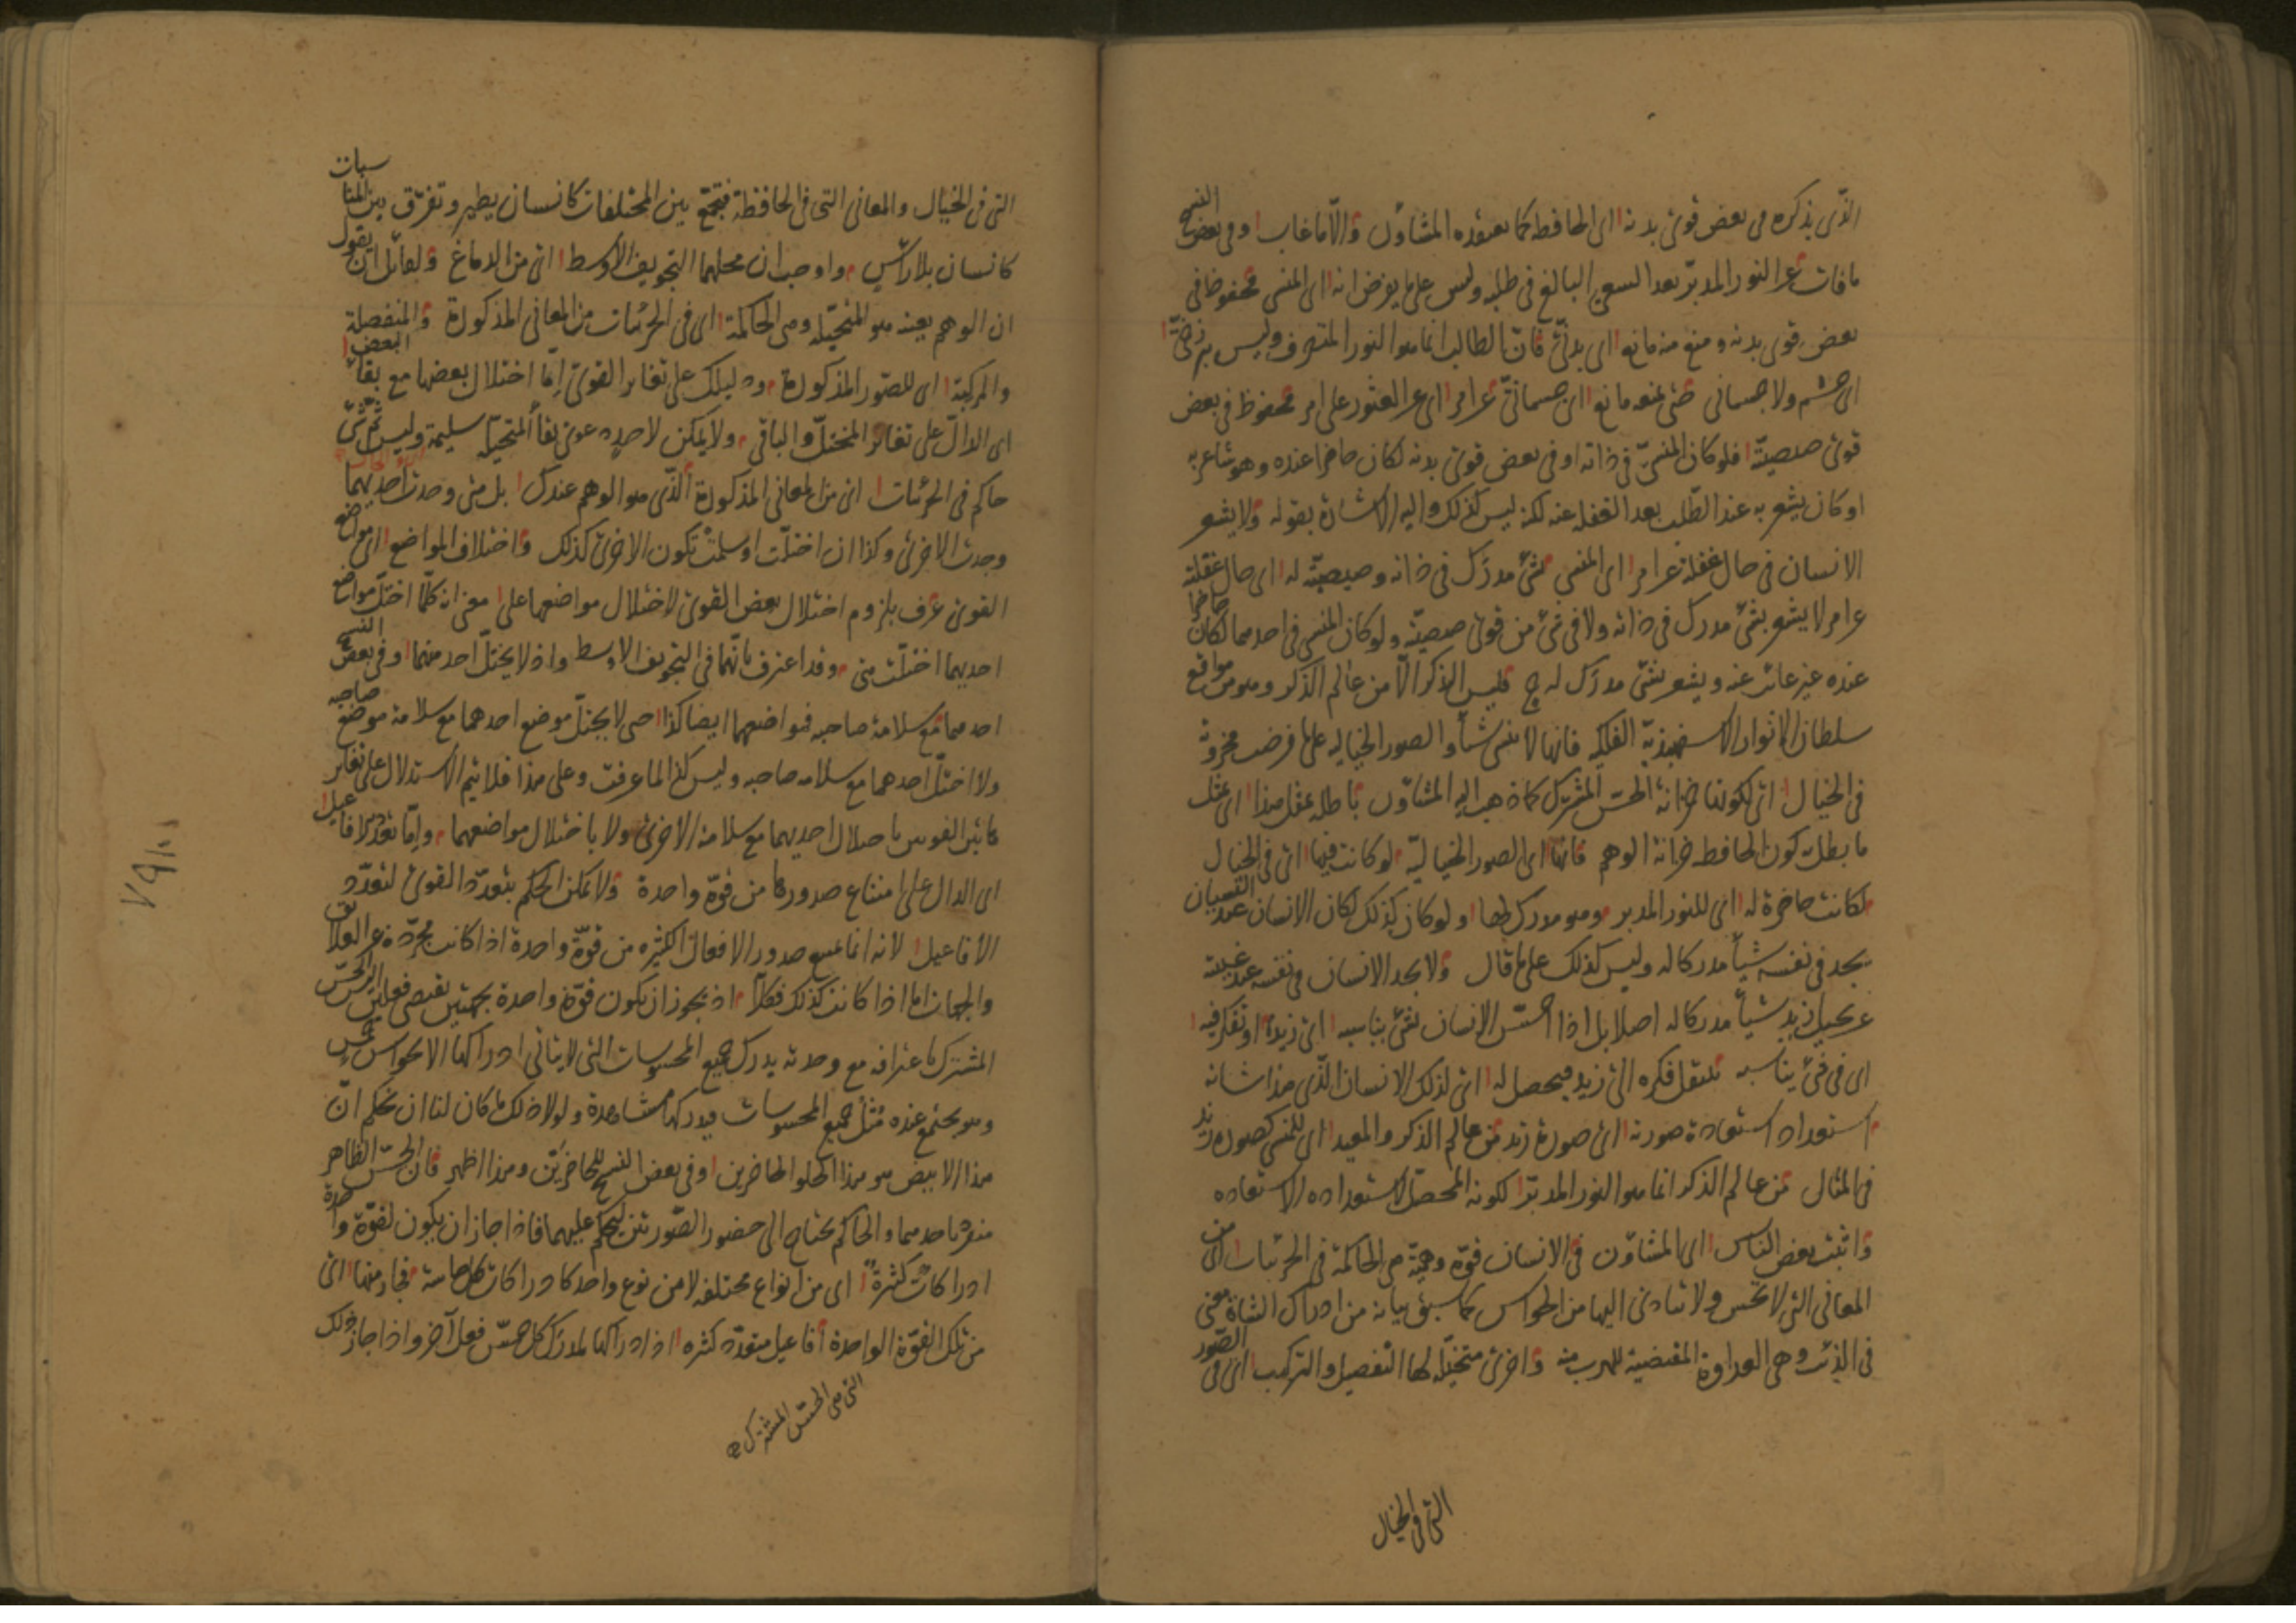 الذى يذكره فى بعض قوى بدنه اى الحافظة كما يعتقده المشاؤن والا ما غاب وفى بعض النسخ
ما فات عن النور المدبر بعد السعى البالغ فى طلبه وليس على ما يفرض انه اى المنسى محفوظ فى
بعض قوى بدنه ومنع منه مانع اى بدنى فان الطالب انما هو النور المتصرف وليس ببرزخى
اى جسم ولا جسمانى حتى يمنعه مانع اى جسمانى عن امر اى عن العثور على امر محفوظ فى بعض
قوى صيصيته فلو كان المنسى فى ذاته او فى بعض قوى بدنه لكان حاضرا عنده وهو شاعر به
او كان يشعر به عند الطلب بعد الغفلة عنه لكنه ليس كذلك واليه الاشارة بقوله ولا يشعر
الانسان فى حال غفلة عن امر اى المنسى بشئ مدرك فى ذاته وصيصيته له اى حال غفلته
عن امر لا يشعر بشئ مدرك فى ذاته ولا فى شئ من قوى صيصيته ولو كان المنسى فى احدهما لكان حاضرا
عنده غير غائب عنه ويشعر بشئ مدرك له ح فليس الذكر الا من عالم الذكر وهو من مواقع
سلطان الانوار الاسفهبذية الفلكية فانها لا تنسى شيأ والصور الخيالية على ما فرضت مخزونة
فى الخيال اى لكونها خزانة الحس المشترك كما ذهب اليه المشاؤن باطلة بمثل هذا اى بمثل
ما بطلت كون الحافظة خزانة الوهم فانها اى الصور الخيالية لو كانت فيها اى فى الخيال
لكانت حاضرة له اى للنور المدبر وهو مدرك لها ولو كان كذلك لكان الانسان عند النسيان
يجد فى نفسه شيأ مدركا له وليس كذلك على ما قال ولا يجد الانسان فى نفسه عند غيبته
عن تخيل زيد شيأ مدركا له اصلا بل اذا احس الانسان بشئ يناسبه اى زيدا او تفكر فيه
اى فى شئ يناسبه تنتقل فكره الى زيد فيحصل له اى لذلك الانسان الذى هذا شانه
استعداد استعادة صورته اى صورة زيد من عالم الذكر والمعيد اى للمنسى كصورة زيد
فى المثال من عالم الذكر انما هو النور المدبر لكونه المحصل لاستعداده الاستعاده
واثبت بعض الناس اى المشاؤن فى الانسان قوة وهمية هى الحاكمة فى الجزئيات اى من
المعانى التى لا تحس ولا تتادى اليها من الحواس كما سبق بيانه من ادراك الشاة معنى
فى الذئب وهى العداوة المقتضية للهرب منه واخرى متخيلة لها التفصيل والتركيب اى فى الصور
التى فى الخيال
التى فى الخيال والمعانى التى فى الحافظة فتجمع بين المختلفات كانسان يطير وتفرق بين المتناسبات
كانسان بلا راس واوجب ان محلهما التجويف الاوسط اى من الدماغ ولقائل ان يقول
ان الوهم بعينه هو المتخيلة وهى الحاكمة اى فى الجزئيات من المعانى المذكورة والمنفصلة
والمركبة اى للصور المذكورة ودليلك على تغاير القوى اما اختلال بعضها مع بقاء البعض
اى الدال على تغاير المختل والباقى ولا يمكن لاحد دعوى بقاء المتخيلة سليمة وليس ثم شئ
حاكم فى الجزئيات اى من المعانى المذكورة الذى هو الوهم عندك بل متى وجدت احديهما
وجدت الاخرى وكذا ان اختلت او سلمت تكون الاخرى كذلك واختلاف المواضع اى مواضع
القوى عرف بلزوم اختلال بعض القوى لاختلال مواضعها على معنى انه كلما اختل مواضع
احديهما اختلت هى وقد اعترف بانهما فى التجويف الاوسط واذ لا يختل احد منهما وفى بعض النسخ
احدهما مع سلامة صاحبه فمواضعهما ايضا كذا حتى لا يختل موضع احدهما مع سلامة موضع صاحبه
ولا اختل احدهما مع سلامة صاحبه وليس كذا لما عرفت وعلى هذا فلا يتم الاستدلال على تغاير
هاتين القوتين باختلال احديهما مع سلامة الاخرى ولا باختلال مواضعهما واما تعدد الافاعيل
اى الدال على امتناع صدورها من قوة واحدة ولا يمكن الحكم بتعدد القوى لتعدد
الافاعيل لانه انما يمتنع صدور الافعال الكثيرة من قوة واحدة اذا كانت مجردة عن العلايق
والجهات اما اذا كانت كذلك فكلا اذ يجوز ان يكون قوة واحدة بجهتين تقتضى فعلين اليس الحس
المشترك باعترافه مع وحدته يدرك جميع المحسوسات التى لا يتاتى ادراكها الا بحواس خمس
وهو يجتمع عنده مثل جميع المحسوسات فيدركها مشاهدة ولولا ذلك ما كان لنا ان نحكم ان
هذا الابيض هو هذا الحلو الحاضرين وفى بعض النسخ للحاضرين وهذا اظهر فان الحس الظاهر
منفرد باحدهما والحاكم يحتاج الى حضور الصورتين ليحكم عليهما فاذا جاز ان يكون لقوة واحدة
ادراكات كثيرة اى من انواع مختلفة لا من نوع واحد كادراكات كل حاسة فجاز منها اى
من تلك القوة الواحدة افاعيل متعدده كثيره اذ ادراكها لمدرك كل حس فعل آخر واذا جاز ذلك
التى هى الحس المشترك صح